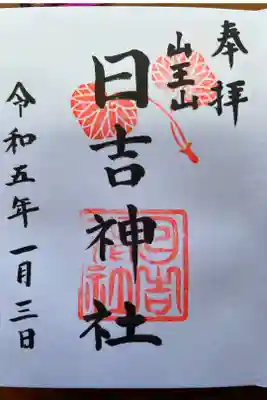 奉拝
山王山
日吉神社
日吉神社
令和五年一月三日